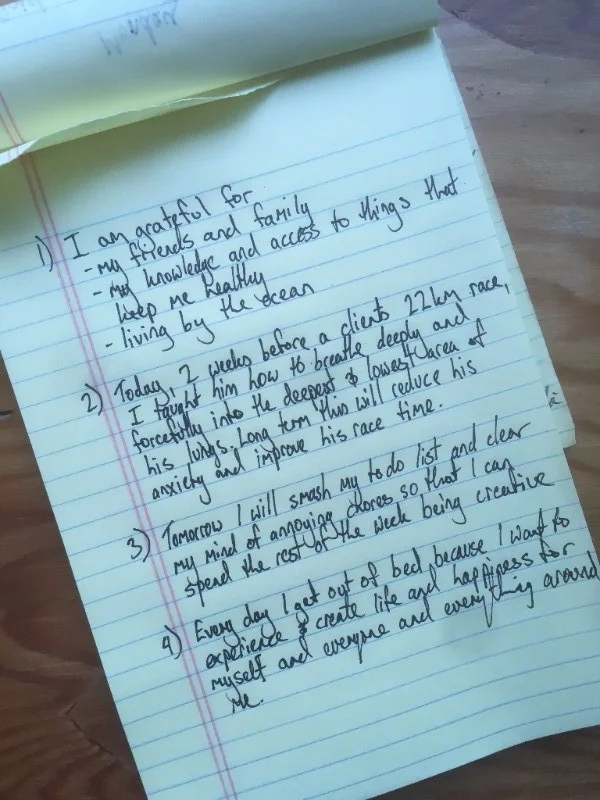 1) I am grateful for
- my friends and family
- my knowledge and access to things that
keep me healthy
- living by the ocean
2) Today, 2 weeks before a clients 22km race,
I taught him how to breathe deeply and
forcefully into the deepest & lowest area of
his lungs. Long term this will reduce his
anxiety and improve his race time.
3) Tomorrow I will smash my to do list and clear
my mind of annoying chores so that I can
spend the rest of the week being creative
4) Every day I get out of bed because I want to
experience & create life and happiness for
myself and everyone and everything around
me.